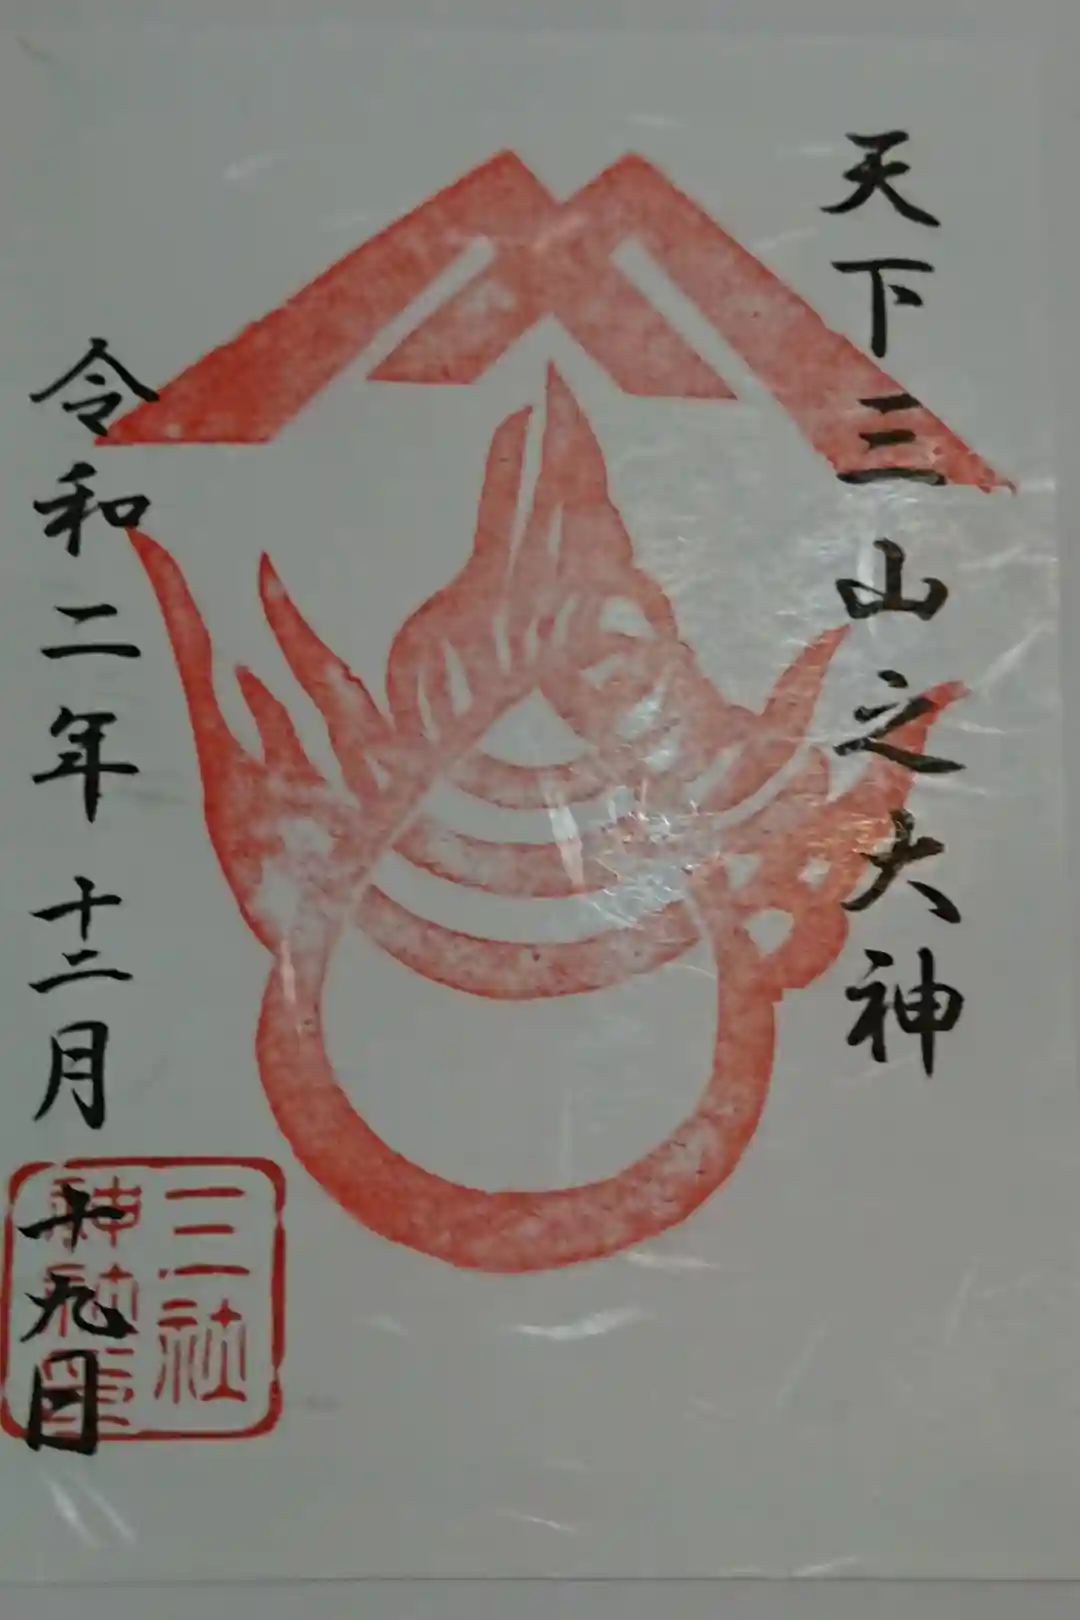 天下三山之大神
令和二年十二月十九日
三社
神社